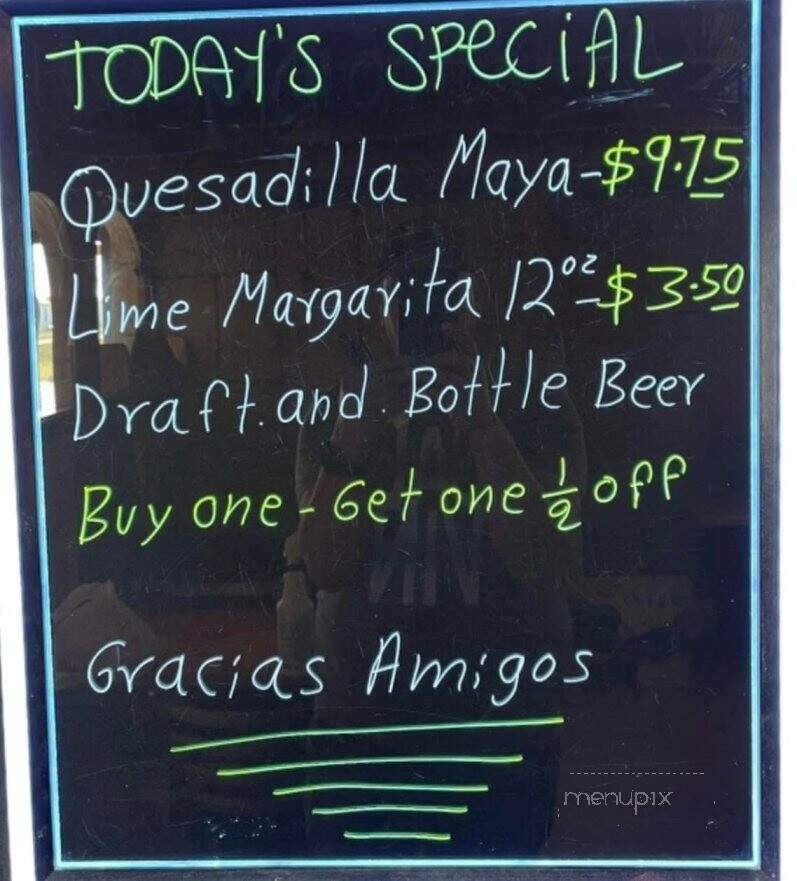 TODAY'S SPECiAL
Quesadilla Maya-$9.75
Lime Margarita 12oz-$3.50
Draft.and.Bottle Beer
Buy one - Get one ½ off
Gracias Amigos
menupix